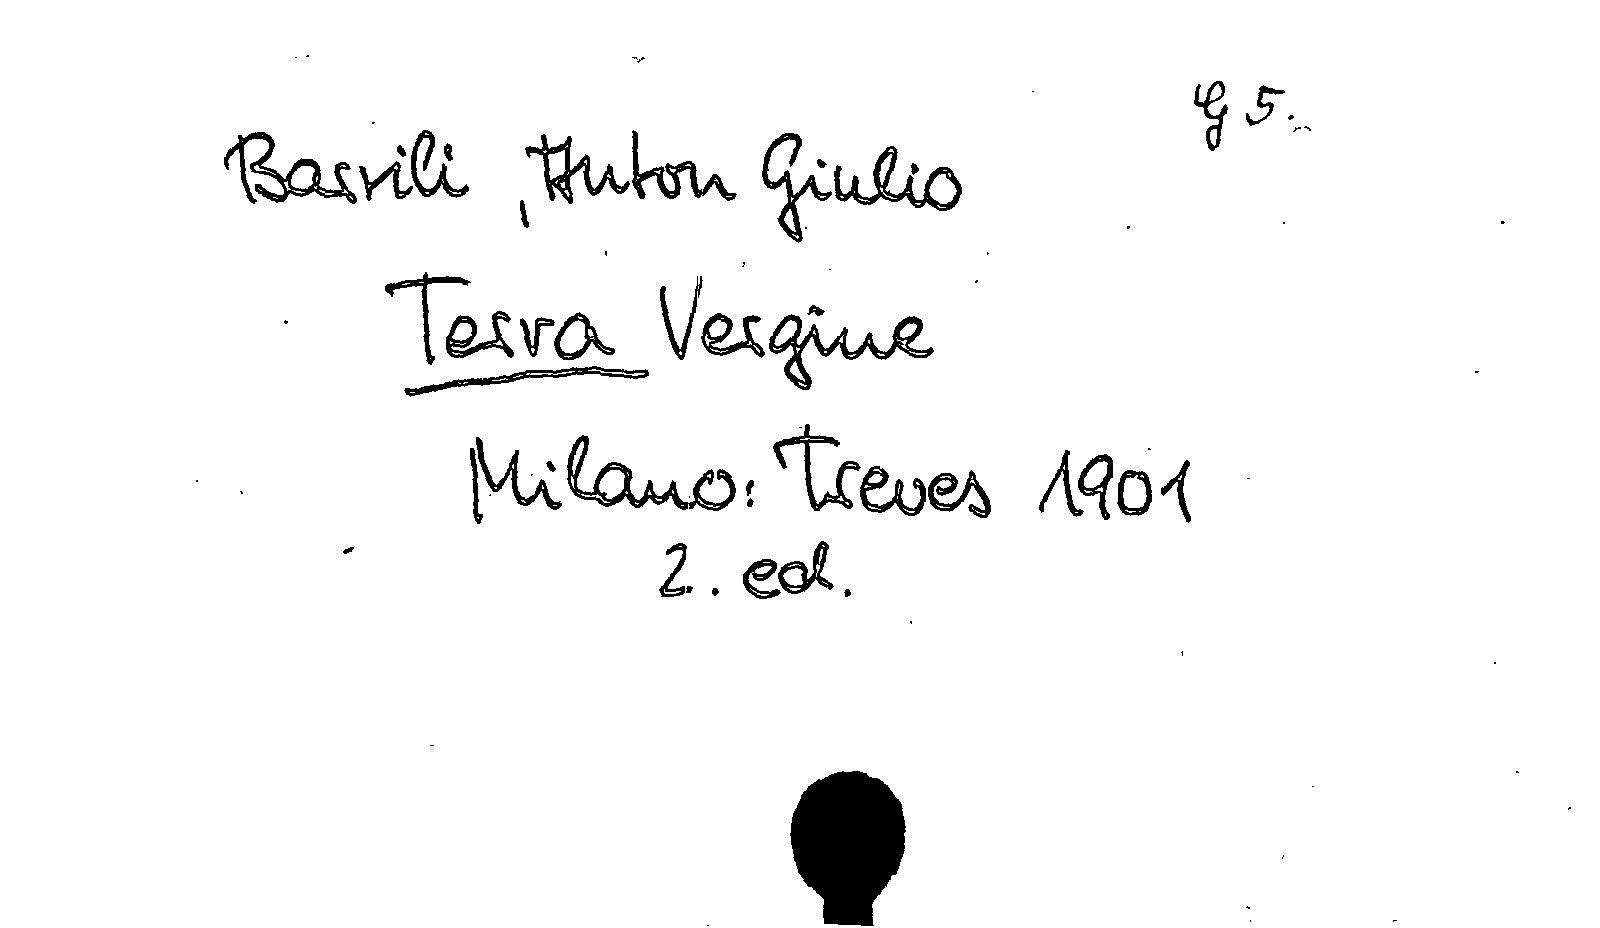 G 5.
Barrili, Anton Giulio
Terra Vergine
Milano: Treves 1901
2. ed.